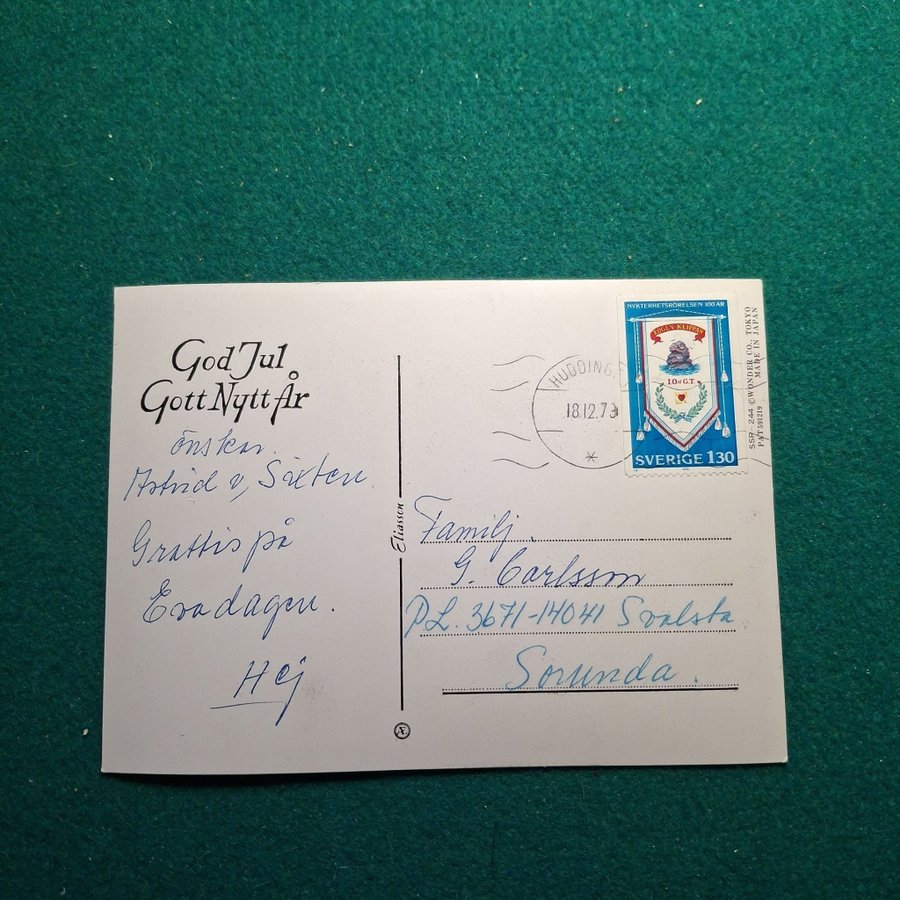 God Jul
Gott Nytt År
önskar
Astrid o, Sixten
Grattis på
Evadagen.
Hej
Eliasson
Æ
HUDDINGE
18.12.79
*
NYKTERHETSRÖRELSEN 100 ÅR
LOGEN KLIPPAN
I.O. of G.T.
SVERIGE 130
SSP. 244 © WONDER CO., TOKYO
PAT 591219 MADE IN JAPAN
Familj
G. Carlsson
PL. 3671-14041 Svalsta
Sorunda.